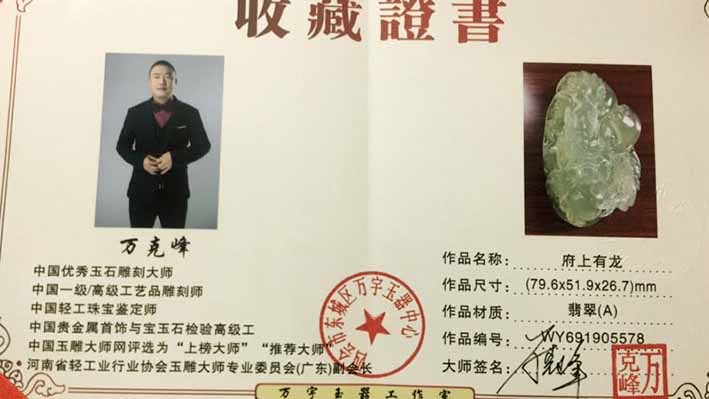 收藏證書
万克峰
中国优秀玉石雕刻大师
中国一级/高级工艺品雕刻师
中国轻工珠宝鉴定师
中国贵金属首饰与宝玉石检验高级工
中国玉雕大师网评选为“上榜大师” “推荐大师”
河南省轻工业行业协会玉雕大师专业委员会(广东)副会长
四会市东城区万字玉器中心
作品名称: 府上有龙
作品尺寸: (79.6x51.9x26.7)mm
作品材质: 翡翠(A)
作品编号: WY691905578
大师签名: 万克峰
万克峰
万字玉器工作室